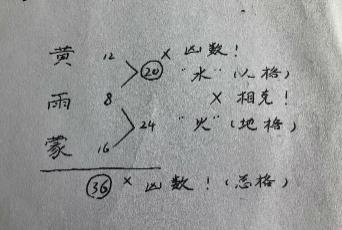 黄 12 20 × 凶数!
"水"(人格)
雨 8 × 相克!
24 "火"(地格)
蒙 16
36 × 凶数!(总格)